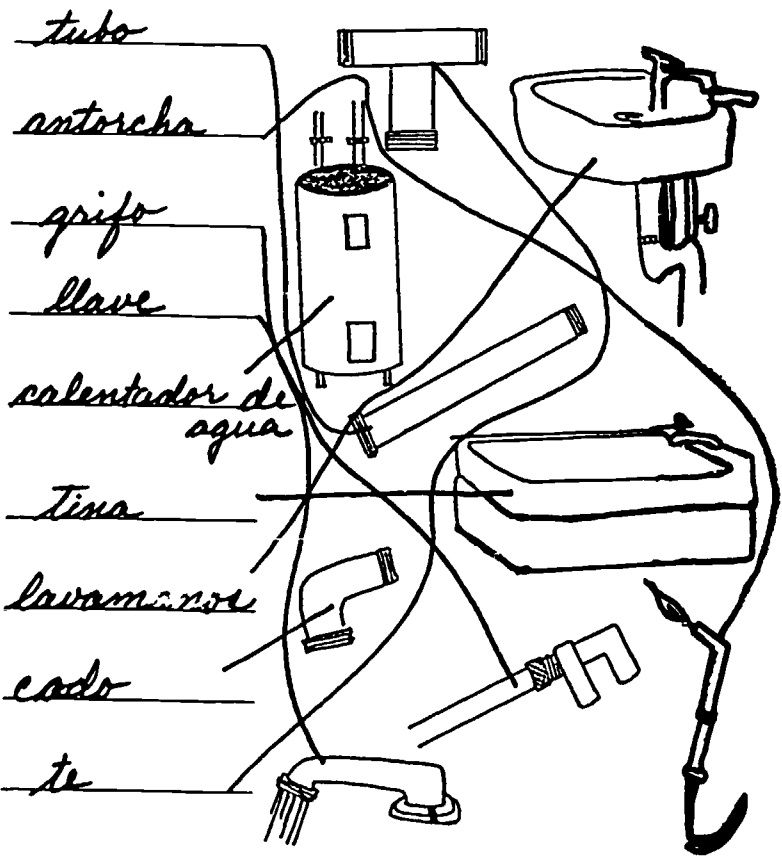 tubo
antorcha
grifo
llave
calentador de
agua
tina
lavamanos
codo
te